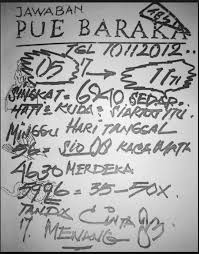 JAWABAN
PUE BARAKA
TGL 10112012..
05 17 1171
SINGKAT = 6840 SEDAP
HATI = KUDA = SIARAT ITU
MINGGU HARI TANGGAL
SIO 08 KACA MATA
4630 MERDEKA
5996 = 35-50X
TANDA CINTA 83
17 MENANG